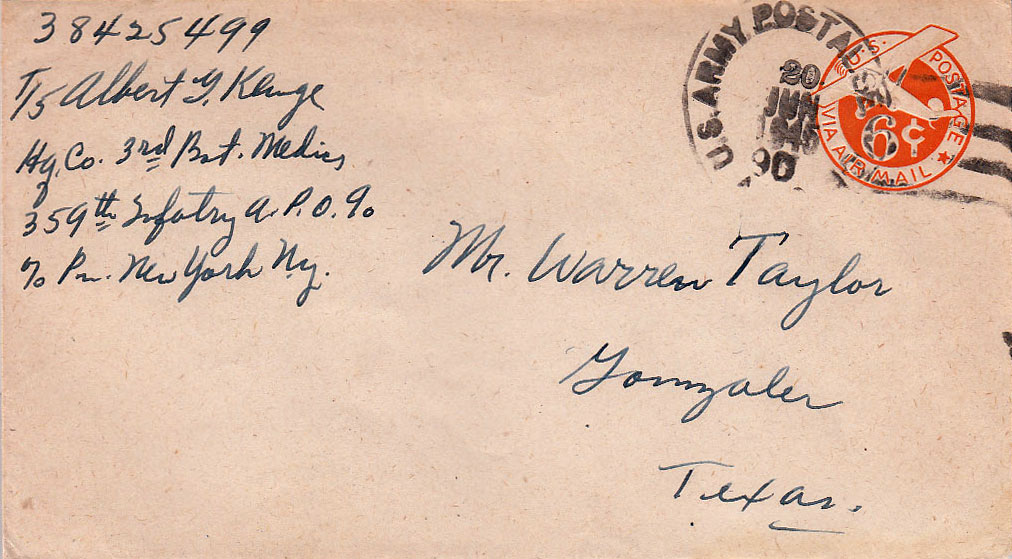 38425499
T/5 Albert G. Kluge
Hq. Co. 3rd Bat. Medics
359th Infatry A.P.O. 90
c/o Pm. New York Ny.
U.S. ARMY POSTAL
20
JUN
1945
90
U.S. POSTAGE
6¢
VIA AIR MAIL
Mr. Warren Taylor
Gonzales
Texas.